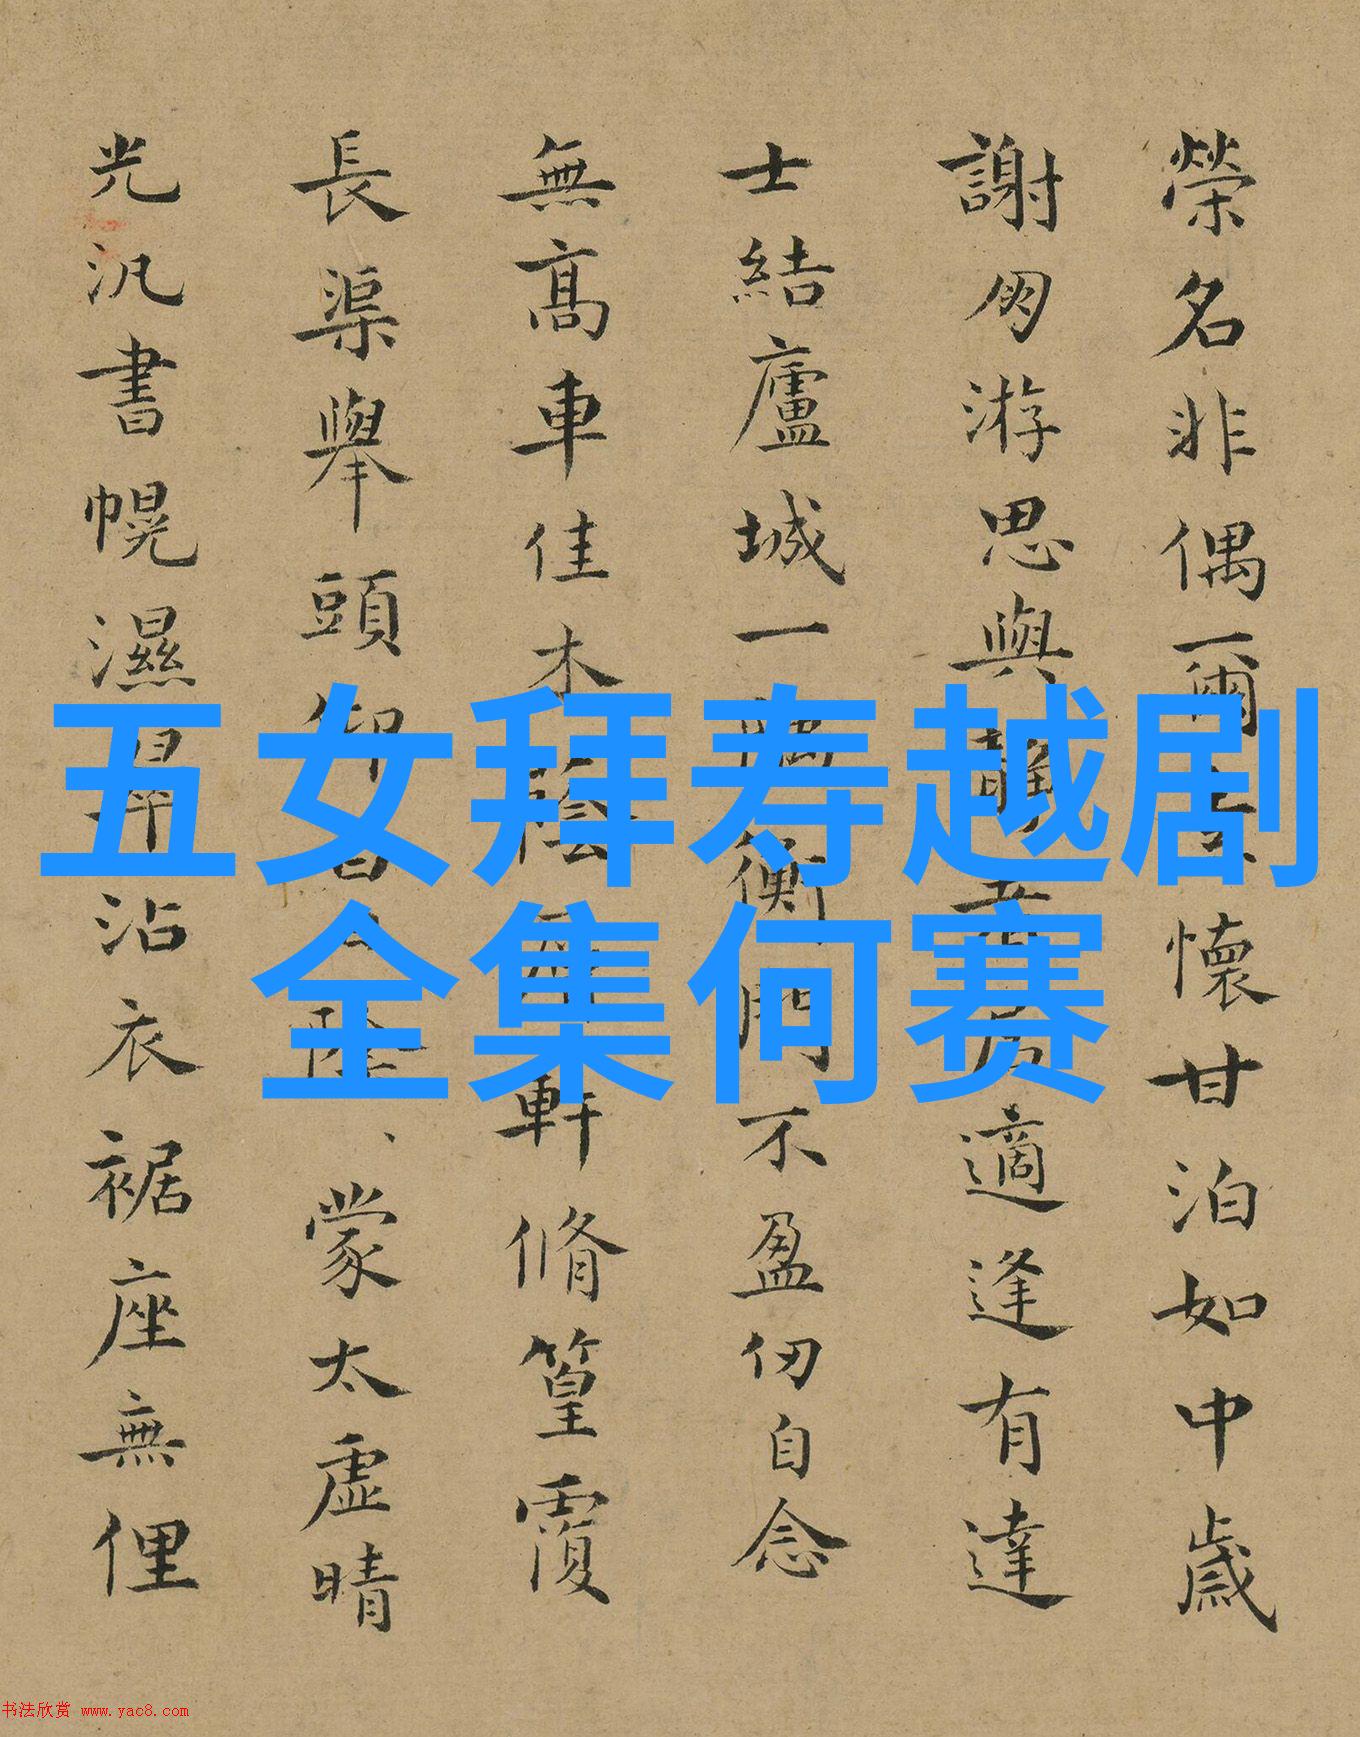 五女拜寿越剧
全集何赛
榮名非偶爾懷甘泊如中歲
謝勿游思與適逢有達
士結廬城一衡門不盈仞自念
無髙車佳木蔭軒脩篁覆
長渠舉頭仰蒙太虛晴
光汎書幌濕沾衣裾座無俚
书法欣赏 www.yac8.com